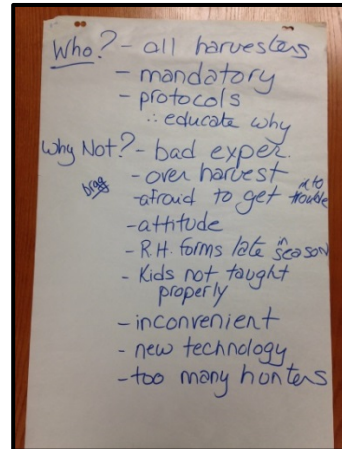 Who? - all harvesters
- mandatory
- protocols
∴ educate why
Why Not? - bad exper.
- over harvest
brag
- afraid to get into trouble
- attitude
- R.H. forms late in season
- Kids not taught
properly
- inconvenient
- new technology
- too many hunters